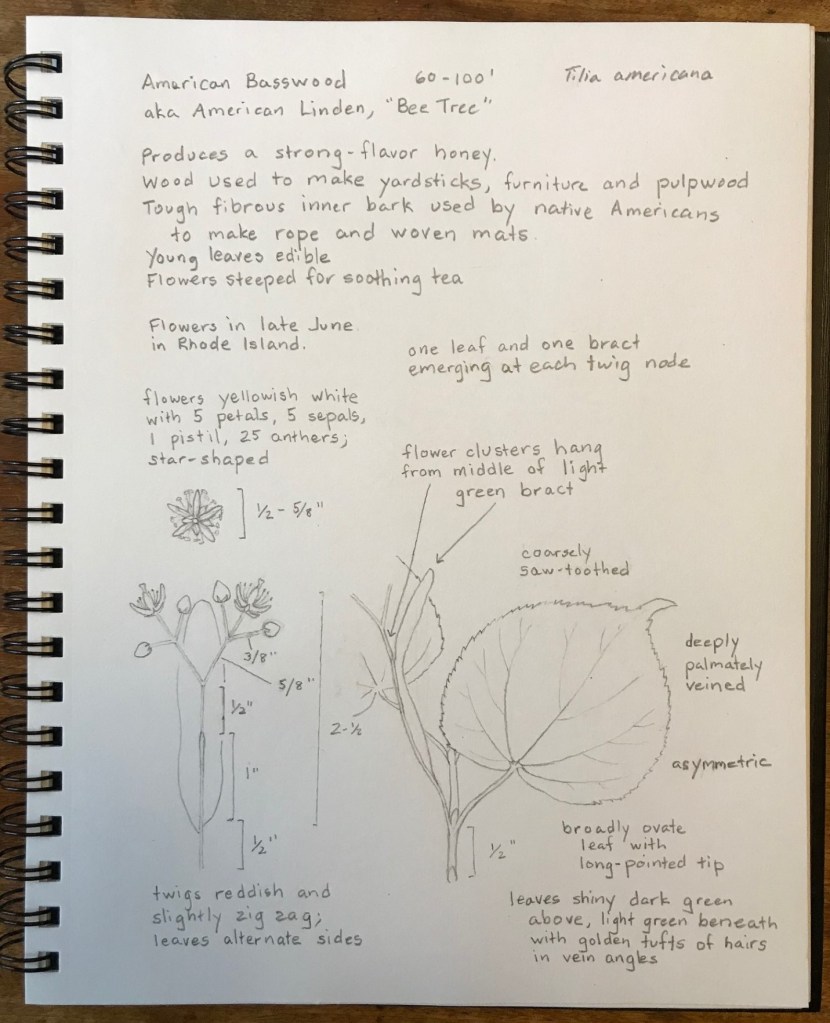 American Basswood 60-100' Tilia americana
aka American Linden, "Bee Tree"
Produces a strong-flavor honey.
Wood used to make yardsticks, furniture and pulpwood
Tough fibrous inner bark used by native Americans
to make rope and woven mats.
Young leaves edible
Flowers steeped for soothing tea
Flowers in late June
in Rhode Island.
one leaf and one bract
emerging at each twig node
flowers yellowish white
with 5 petals, 5 sepals,
1 pistil, 25 anthers;
star-shaped
flower clusters hang
from middle of light
green bract
1/2 - 5/8"
coarsely
saw-toothed
deeply
palmately
veined
3/8"
5/8"
1/2"
2-1/2
1"
asymmetric
1/2"
1/2"
broadly ovate
leaf with
long-pointed tip
twigs reddish and
slightly zig zag;
leaves alternate sides
leaves shiny dark green
above, light green beneath
with golden tufts of hairs
in vein angles